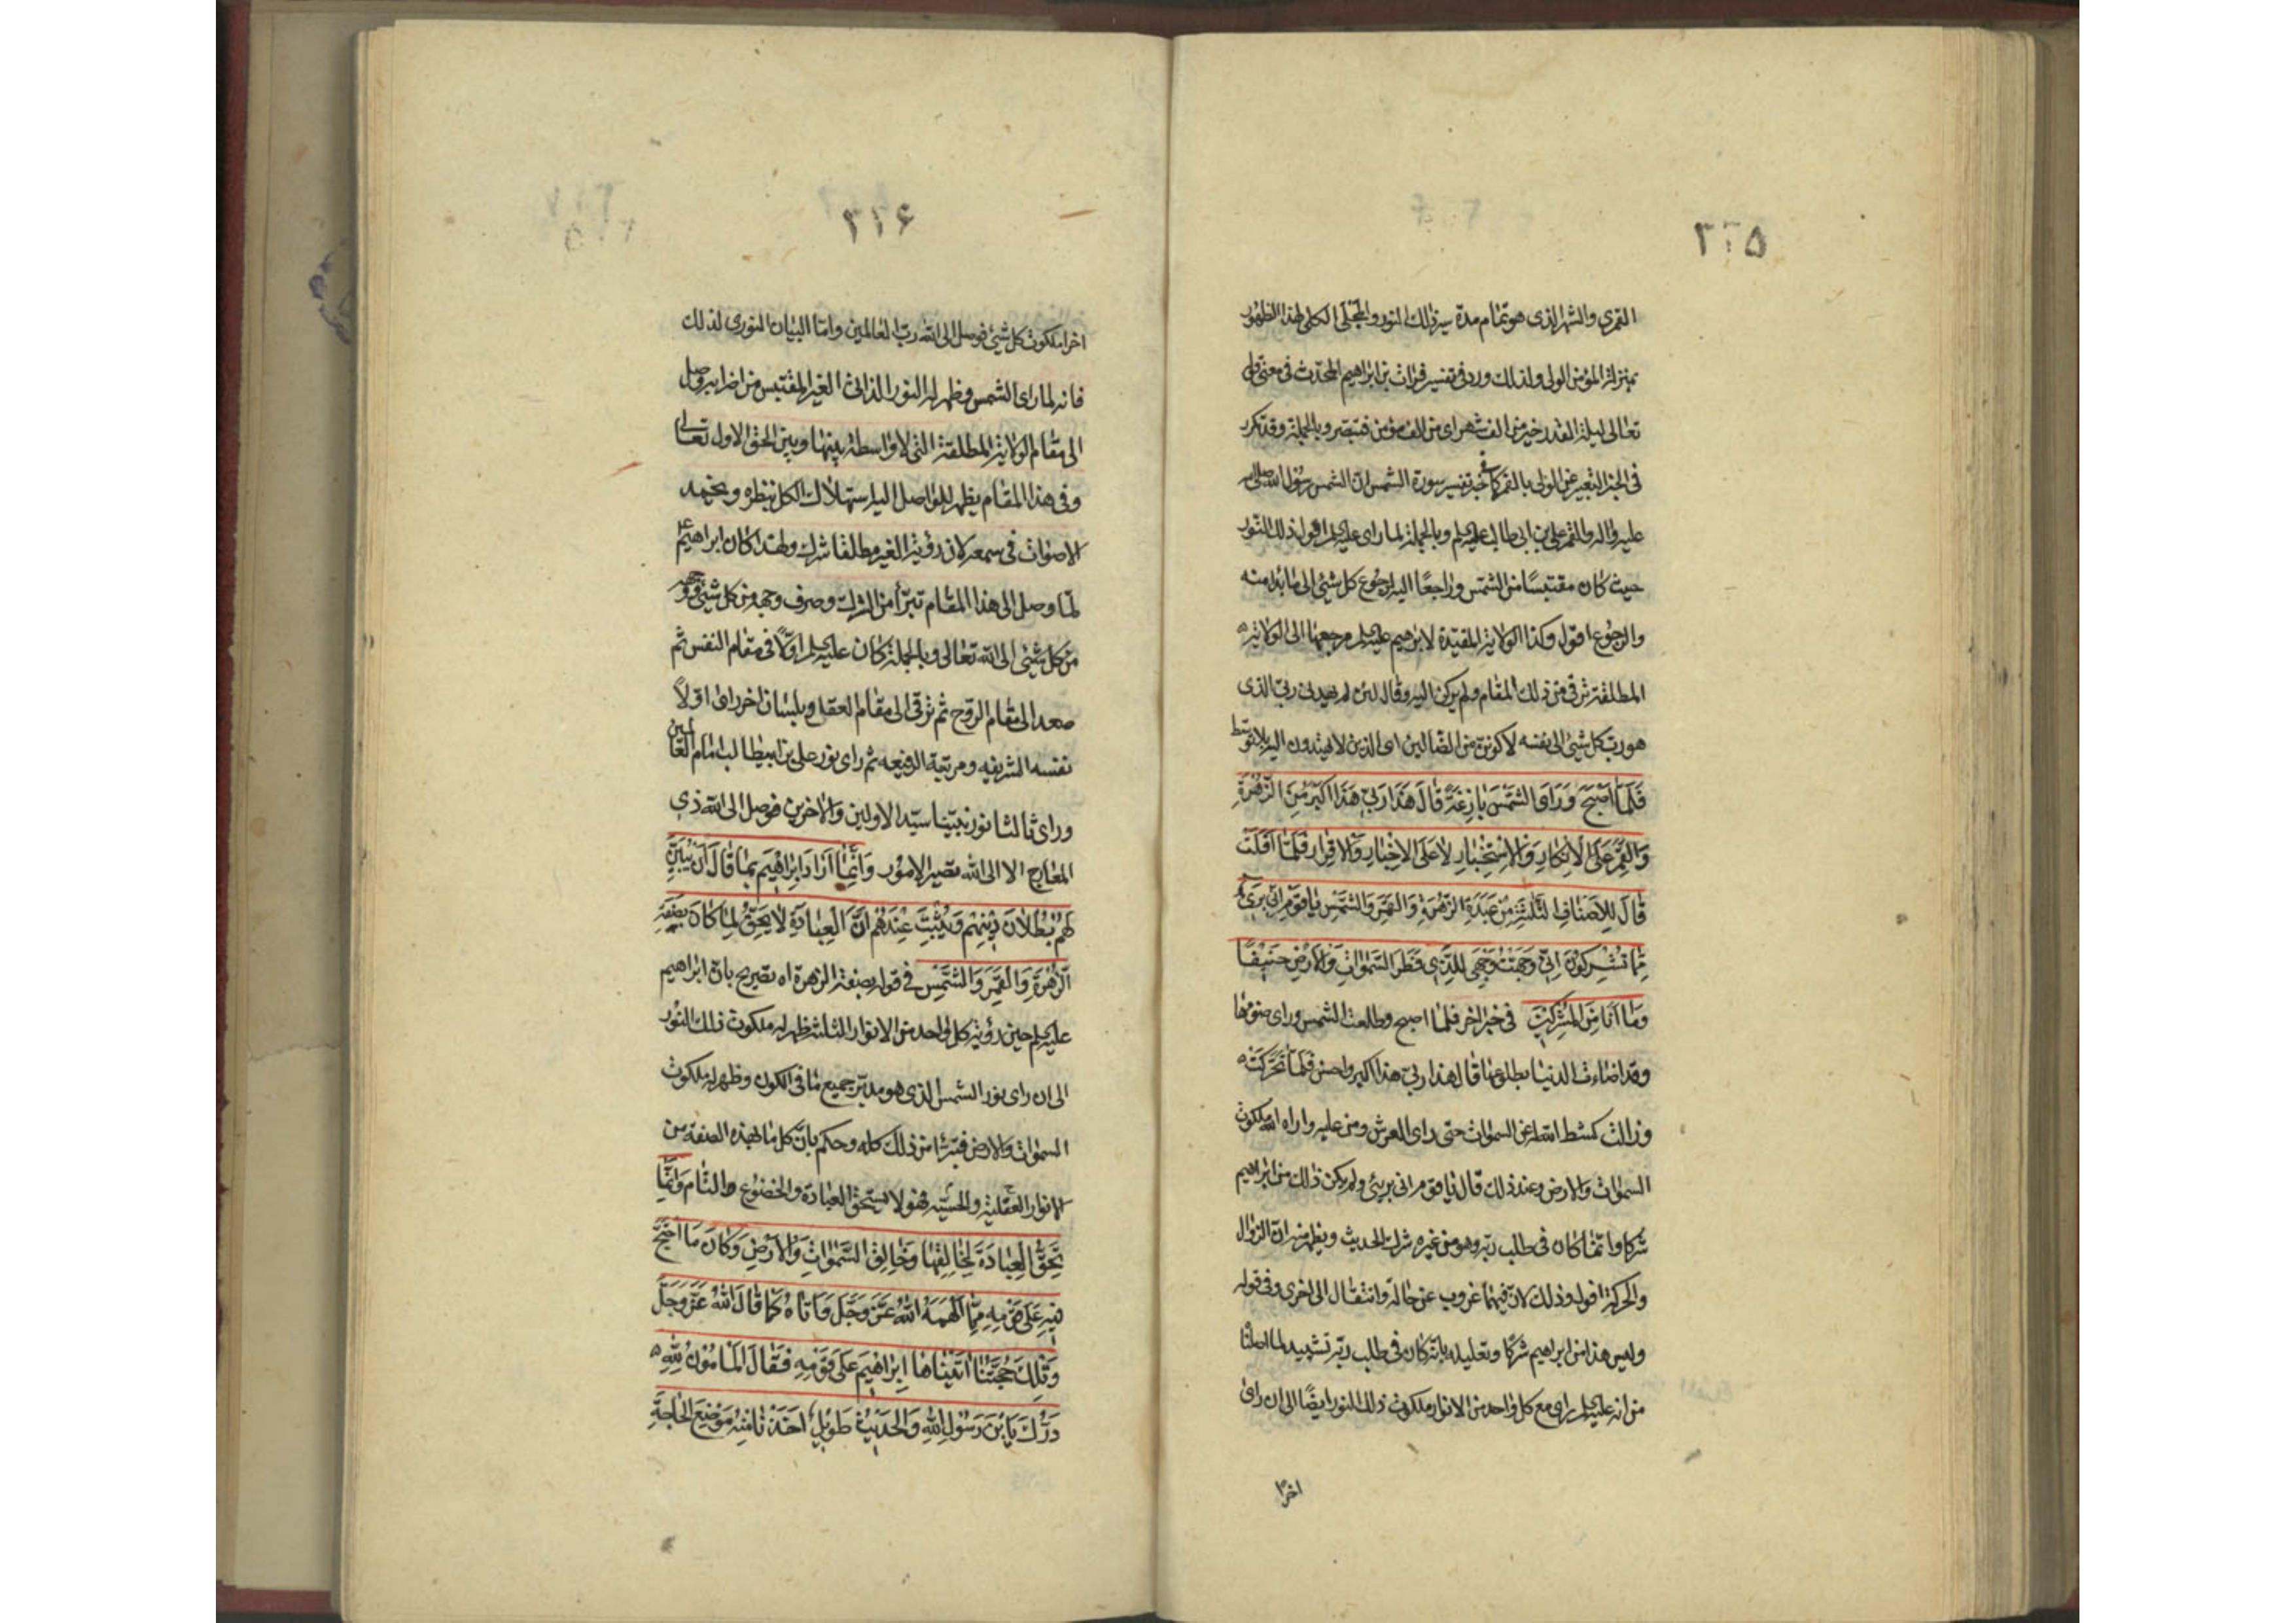 ٣١٥
القمري والشهر الذى هو تمام مدة سير ذلك النور والمجلى الكلى لهذا الظهور
بمنزلة المؤمن الولى ولذلك ورد فى تفسير فرات بن ابراهيم المحدّث فى معنى قوله
تعالى ليلة القدر خير من الف شهر اى من الف مؤمن فتبصر وبالجملة وقد تكرر
فى الخبر التعبير عن الولى بالقمر كما فى خبر تفسير سورة الشمس ان الشمس رسول الله صلى الله
عليه واله والقمر على بن ابى طالب عليه السلم وبالجملة لما راى عليه السلم افول ذلك النّور
حيث كان مقتبسًا من الشمس وراجعًا اليه رجوع كل شئ الى ما بدا منه
والرجوع افول وكذا الولاية المقيّدة لابرهيم عليه السلم مرجعها الى الولاية
المطلقة ترقى من ذلك المقام ولم يركن اليه وقال لئن لم يهدنى ربّى الذى
هو ربّ كل شئ الى نفسه لاكوننّ من الضّالين اى الذين لا يهتدون اليه بلا توسّط
فَلَمَّا اَصْبَحَ وَرَاَى الشَّمْسَ بازِغَةً قٰالَ هٰذٰا رَبّى هٰذٰا اَكْبَرُ مِنَ الزُّهَرَةِ
وَالْقَمَرِ عَلَى الْاِنْكارِ وَالْاِسْتِخْبارِ لاٰ عَلَى الْاِخْبارِ وَالْاِقْرارِ فَلَمّٰا اَفَلَتْ
قٰالَ لِلْاَصْنافِ الثَّلٰثَةِ مِنْ عَبَدَةِ الزُّهَرَةِ وَالْقَمَرِ وَالشَّمْسِ يٰا قَوْمِ اِنّى بَرىءٌ
مِمّٰا تُشْرِكُونَ اِنّى وَجَّهْتُ وَجْهِىَ لِلَّذى فَطَرَ السَّمٰوٰاتِ وَالْاَرْضَ حَنيفًا
وَمٰا اَنَا مِنَ الْمُشْرِكينَ فى خبر اخر فلما اصبح وطلعت الشمس وراى ضوئها
وقد اضاءت الدنيا بطلوعها قال هذا ربى هذا اكبر واحسن فلمّا تحرّكت
وزالت كشط الله عن السموات حتى راى العرش ومن عليه واراه الله ملكوت
السموات والارض وعند ذلك قال يا قوم انى برئ ولم يكن ذلك من ابراهيم
شركا وانما كان فى طلب ربّه وهو من غيره شرك الحديث ويظهر منه انّ الزوال
والحركة افول وذلك لانّ فيهما غروب عن حالة وانتقال الى اخرى وفى قوله
وليس هذا من ابراهيم شركًا وتعليله بانّه كان فى طلب ربّه تشييد لما اصلنا
من انه عليه السلم راى مع كل واحد من الانوار ملكوت ذلك النور ايضًا الى ان راى
اخرًا
٣١۶
اخرا ملكوت كل شئ فوصل الى الله ربّ العالمين وامّا البيان النورى لذلك
فانه لما راى الشمس وظهر له النور الذاتى الغير المقتبس من اضرابه وصل
الى مقام الولاية المطلقة التى لا واسطة بينها وبين الحق الاول تعالى
وفى هذا المقام يظهر للواصل اليه استهلاك الكل بنظره ويخمد
الاصوات فى سمعه لان رؤية الغير مطلقا شرك ولهذا كان ابراهيم ع
لمّا وصل الى هذا المقام تبرّأ من الشرك وصرف وجهه من كل شئ
من كل شئ الى الله تعالى وبالجملة كان عليه السلم اوّلًا فى مقام النفس ثم
صعد الى مقام الروح ثم ترقى الى مقام العقل وبلسان اخر راى اوّلًا
نفسه الشريفه ومرتبة الرفيعه ثم راى نور على بن ابيطالب امام العالمين
وراى ثالثا نور نبيّنا سيّد الاولين والاخرين فوصل الى الله ذى
المعارج الا الى الله تصير الامور وَاِنَّمٰا اَرٰادَ اِبْرٰاهيمُ بِمٰا قٰالَ اَنْ يُبَيِّنَ
لَهُمْ بُطْلاٰنَ دينِهِمْ وَيُثْبِتَ عِنْدَهُمْ اَنَّ الْعِبٰادَةَ لاٰ يَحِقُّ لِمٰا كٰانَ بِصِفَةِ
الزُّهَرَةِ وَالْقَمَرِ وَالشَّمْسِ فى قوله بصفة الزهرة اه تصريح بان ابراهيم
عليه السلم حين رؤية كل واحد من الانوار الثلثة ظهر له ملكوت ذلك النّور
الى ان راى نور الشمس الذى هو مدبّر جميع ما فى الكون وظهر له ملكوت
السموات والارض فتبرّءا من ذلك كله وحكم بانّ كل ما بهذه الصفة من
الانوار العقلية والحسّيه فهو لا يستحق العبادة والخضوع التام وَاِنَّمٰا
تَحِقُّ الْعِبٰادَةُ لِخٰالِقِهٰا وَخٰالِقِ السَّمٰوٰاتِ وَالْاَرْضِ وَكٰانَ مٰا احْتَجَّ
بِهِ عَلىٰ قَوْمِهِ مِمّٰا اَلْهَمَهُ اللهُ عَزَّ وَجَلَّ وَاٰتٰاهُ كَمٰا قٰالَ اللهُ عَزَّ وَجَلَّ
وَتِلْكَ حُجَّتُنٰا اٰتَيْنٰاهٰا اِبْرٰاهيمَ عَلىٰ قَوْمِهِ فَقٰالَ الْمَاْمُونُ لِلّٰهِ
دَرُّكَ يَا بْنَ رَسُولِ اللهِ وَالْحَديثُ طَويلٌ اَخَذْنٰا مِنْهُ مَوْضِعَ الْحٰاجَةِ